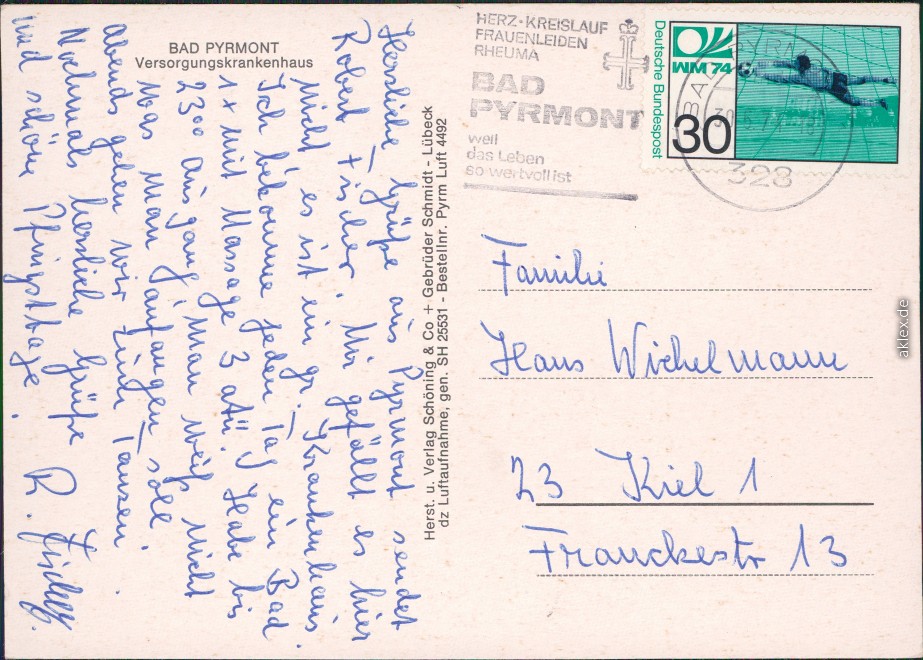 BAD PYRMONT
Versorgungskrankenhaus
Herzliche Grüße aus Pyrmont sendet
Robert Fischer. Mir gefällt es hier
nicht es ist ein gr. Krankenhaus.
Ich bekomme jeden Tag ein Bad
1 x mit Massage 3 atü. Habe bis
23oo ausgang man weiß nicht
was man anfangen soll.
abends gehen wir zum Tanzen.
Nochmals herzliche Grüße
und schöne Pfingsttage!
R. Fischer.
Herst. u. Verlag Schöning & Co + Gebrüder Schmidt - Lübeck
dz Luftaufnahme, gen. SH 25531 - Bestellnr. Pyrm Luft 4492
HERZ·KREISLAUF
FRAUENLEIDEN
RHEUMA
BAD
PYRMONT
weil
das Leben
so wertvoll ist
Deutsche Bundespost
WM 74
30
328
Familie
Hans Wichelmann
23 Kiel 1
Franckestr 13
aklex.de